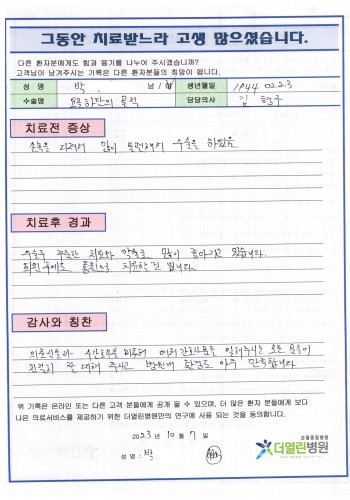 그동안 치료받느라 고생 많으셨습니다.
다른 환자분에게도 힘과 용기를 나누어 주시겠습니까?
고객님이 남겨주시는 기록은 다른 환자분들의 희망이 됩니다.
성 명 박 남 / 여 생년월일 1944 0223
수술명 요측하단의 골절 담당의사 김
치료전 증상
손목을 다쳐서 많이 불편해서 수술을 하였음
치료후 경과
수술후 꾸준한 치료와 약으로 많이 좋아지고 있습니다.
퇴원 후에도 통원으로 치유할 것 입니다
감사와 칭찬
의료진들과 수간호사 비롯해 여러 간호사분들 일해주시는 모든 분들이
친절히 잘 대해 주시고 병원내 환경도 아주 만족합니다
위 기록은 온라인 또는 다른 고객 분들에게 공개 될 수 있으며, 더 많은 환자 분들에게 보다
나은 의료서비스를 제공하기 위한 더열린병원만의 연구에 사용 되는 것을 동의합니다.
2023 년 10 월 7 일
성 명 : 박
관절종합병원
더열린병원